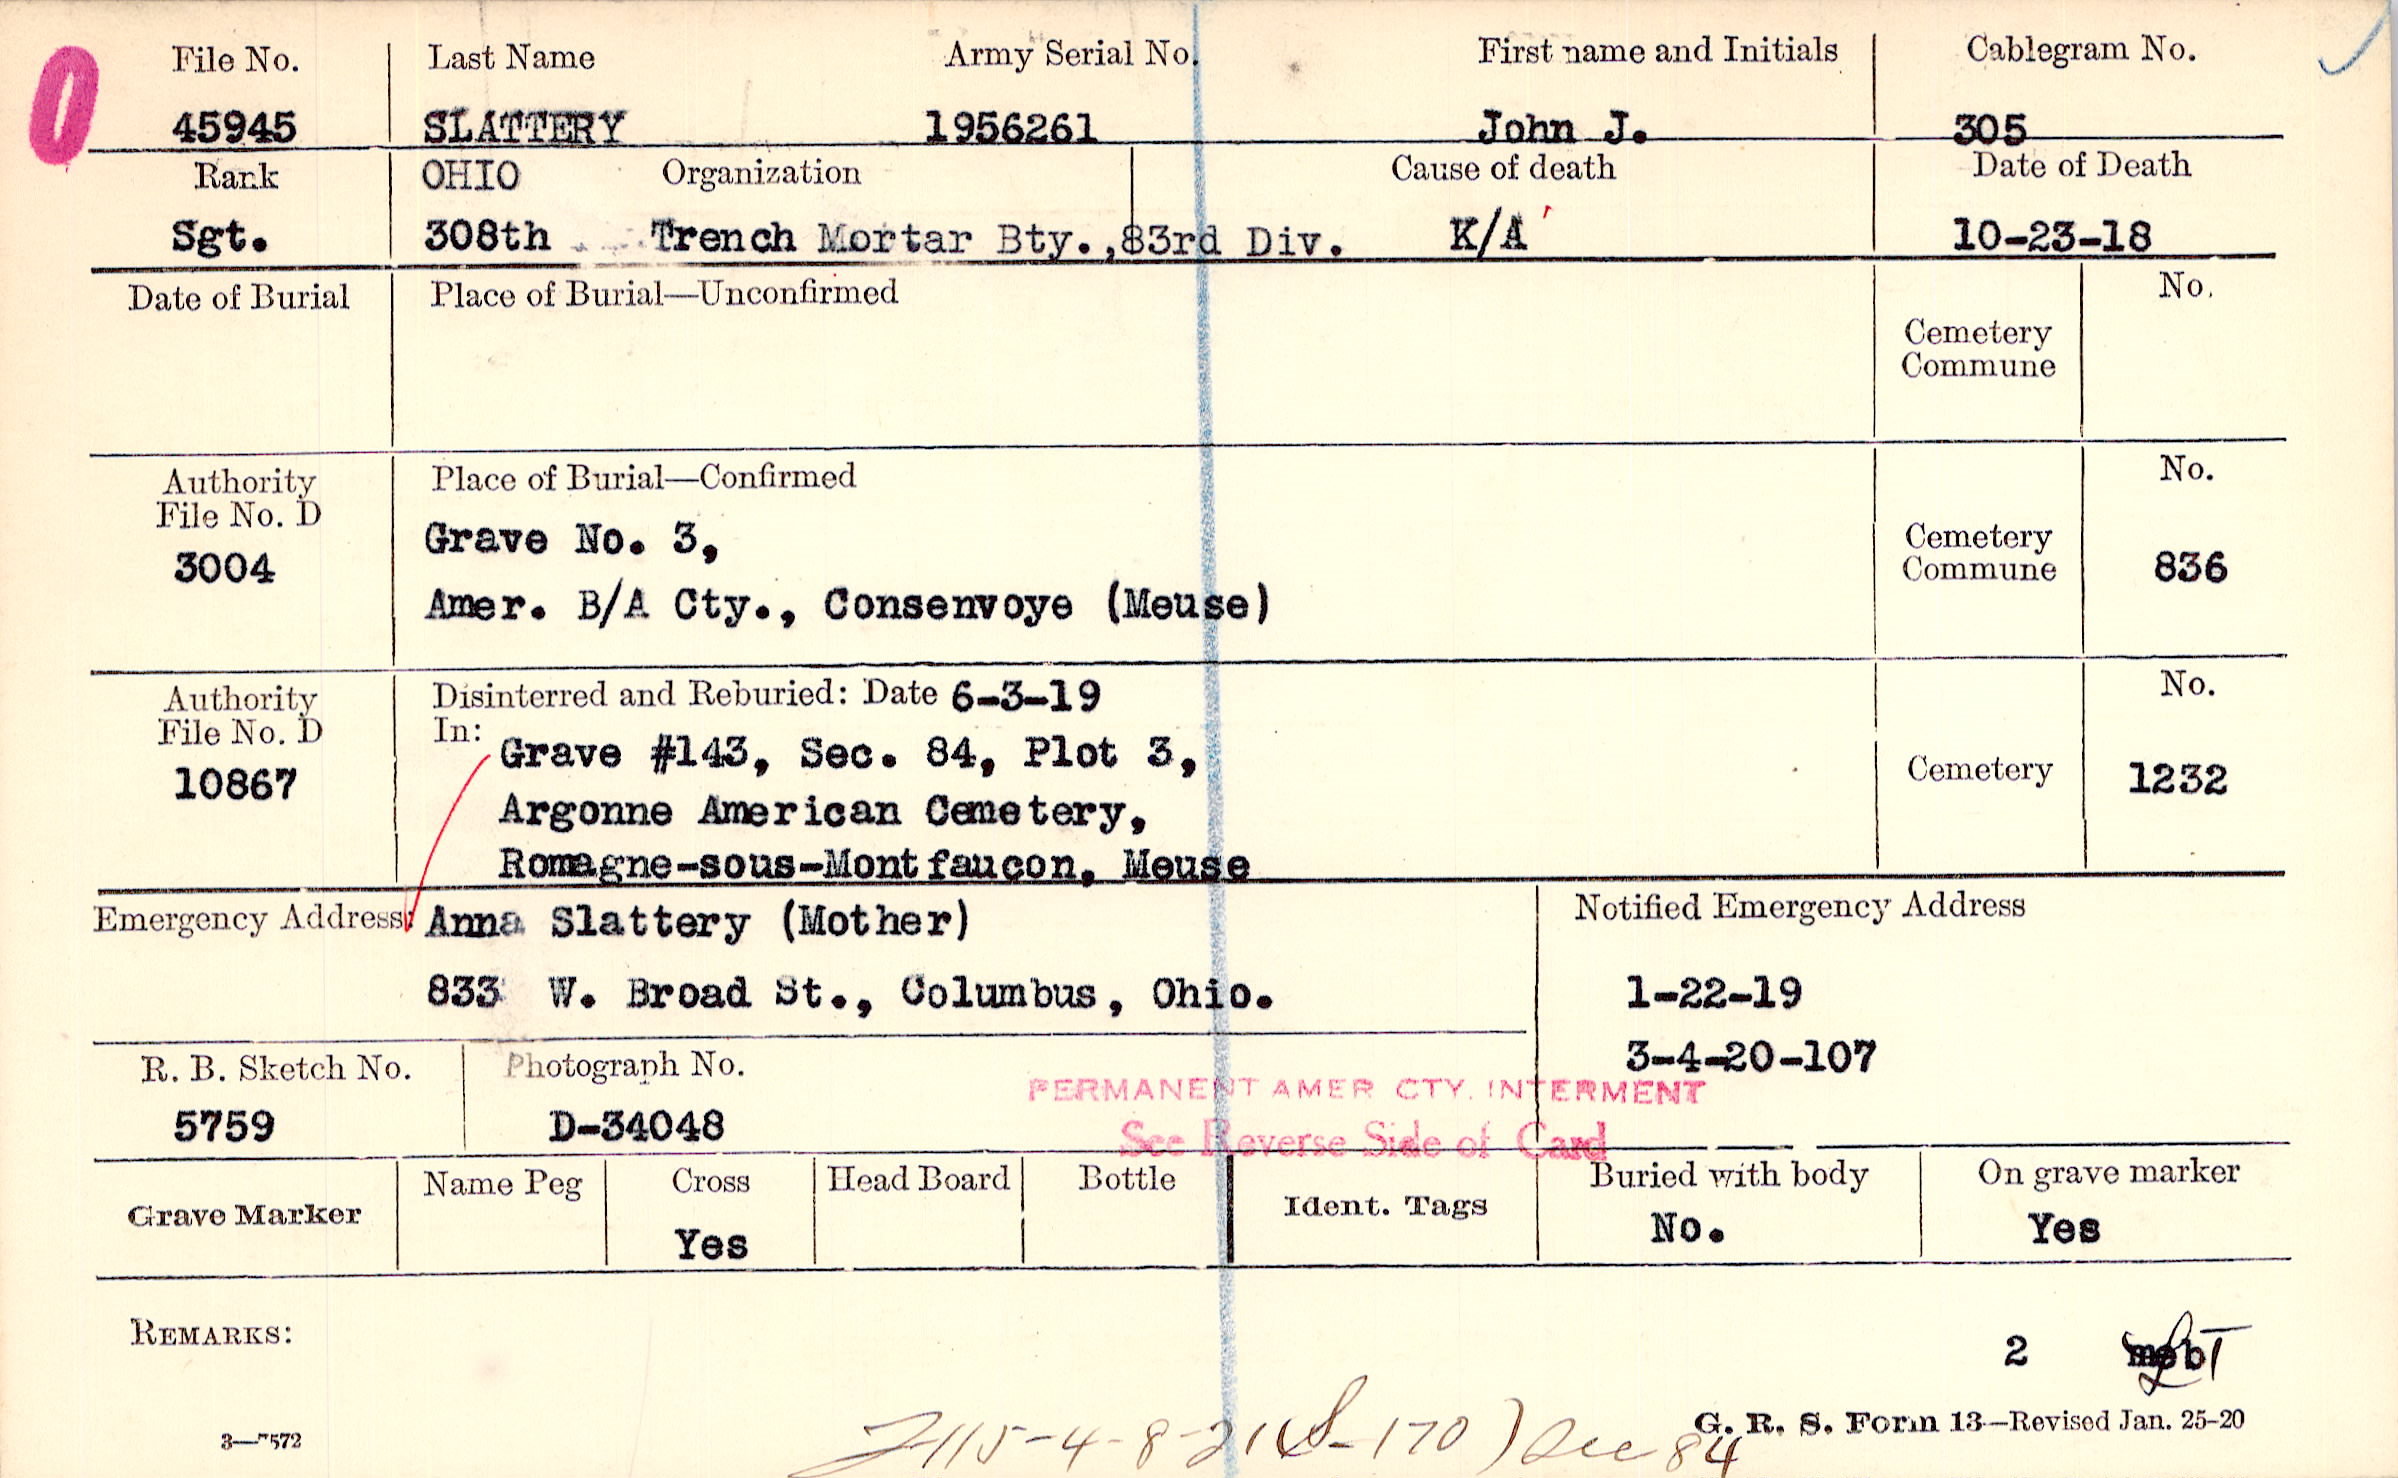 File No. Last Name Army Serial No. First name and Initials Cablegram No.
45945 SLATTERY 1956261 John J. 305
Rank OHIO Organization Cause of death Date of Death
Sgt. 308th Trench Mortar Bty.,83rd Div. K/A 10-23-18
Date of Burial Place of Burial—Unconfirmed No.
Cemetery
Commune
Authority Place of Burial—Confirmed No.
File No. D
Grave No. 3, Cemetery
3004 Commune 836
Amer. B/A Cty., Consenvoye (Meuse)
Authority Disinterred and Reburied: Date 6-3-19 No.
File No. D In:
Grave #143, Sec. 84, Plot 3,
10867 Cemetery 1232
Argonne American Cemetery,
Romagne-sous-Montfaucon, Meuse
Emergency Address: Anna Slattery (Mother) Notified Emergency Address
833 W. Broad St., Columbus, Ohio. 1-22-19
3-4-20-107
R. B. Sketch No. Photograph No.
PERMANENT AMER CTY. INTERMENT
5759 D-34048
See Reverse Side of Card
Grave Marker Name Peg Cross Head Board Bottle Ident. Tags Buried with body On grave marker
Yes No. Yes
REMARKS:
2
G. R. S. Form 13—Revised Jan. 25-20
3—7572
170) Sec 84